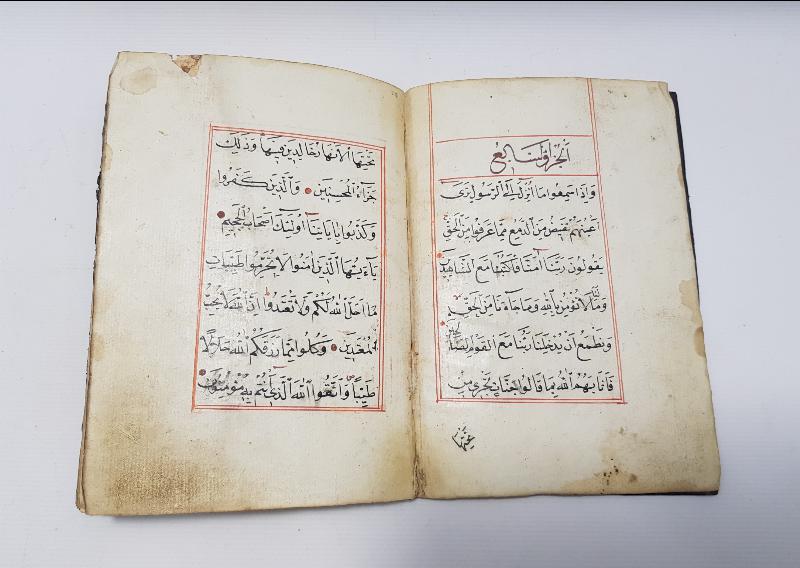 الجزؤ السابع
وَاِذَا سَمِعُوا مَا اُنْزِلَ اِلَى الرَّسُولِ تَرَى
اَعْيُنَهُمْ تَفِيضُ مِنَ الدَّمْعِ مِمَّا عَرَفُوا مِنَ الْحَقِّ
يَقُولُونَ رَبَّنَا اٰمَنَّا فَاكْتُبْنَا مَعَ الشَّاهِدِينَ
وَمَا لَنَا لَا نُؤْمِنُ بِاللّٰهِ وَمَا جَاءَنَا مِنَ الْحَقِّ
وَنَطْمَعُ اَنْ يُدْخِلَنَا رَبُّنَا مَعَ الْقَوْمِ الصَّالِحِينَ
فَاَثَابَهُمُ اللّٰهُ بِمَا قَالُوا جَنَّاتٍ تَجْرِى مِنْ
تَحْتِهَا
تَحْتِهَا الْاَنْهَارُ خَالِدِينَ فِيهَا وَذٰلِكَ
جَزَاءُ الْمُحْسِنِينَ وَالَّذِينَ كَفَرُوا
وَكَذَّبُوا بِاٰيَاتِنَا اُولٰئِكَ اَصْحَابُ الْجَحِيمِ
يَا اَيُّهَا الَّذِينَ اٰمَنُوا لَا تُحَرِّمُوا طَيِّبَاتِ
مَا اَحَلَّ اللّٰهُ لَكُمْ وَلَا تَعْتَدُوا اِنَّ اللّٰهَ لَا يُحِبُّ
الْمُعْتَدِينَ وَكُلُوا مِمَّا رَزَقَكُمُ اللّٰهُ حَلَالًا
طَيِّبًا وَاتَّقُوا اللّٰهَ الَّذِى اَنْتُمْ بِهِ مُؤْمِنُونَ